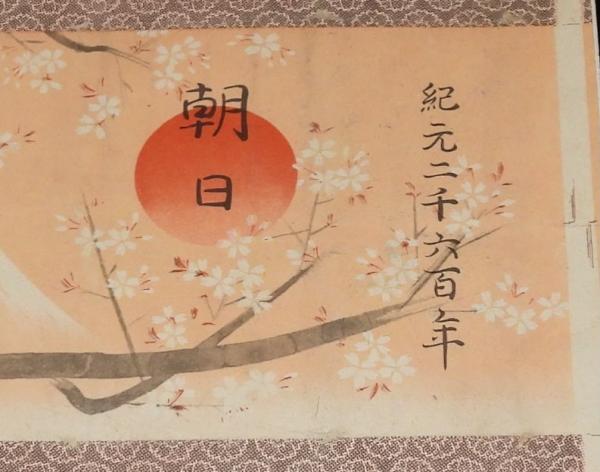 紀元二千六百年
朝日